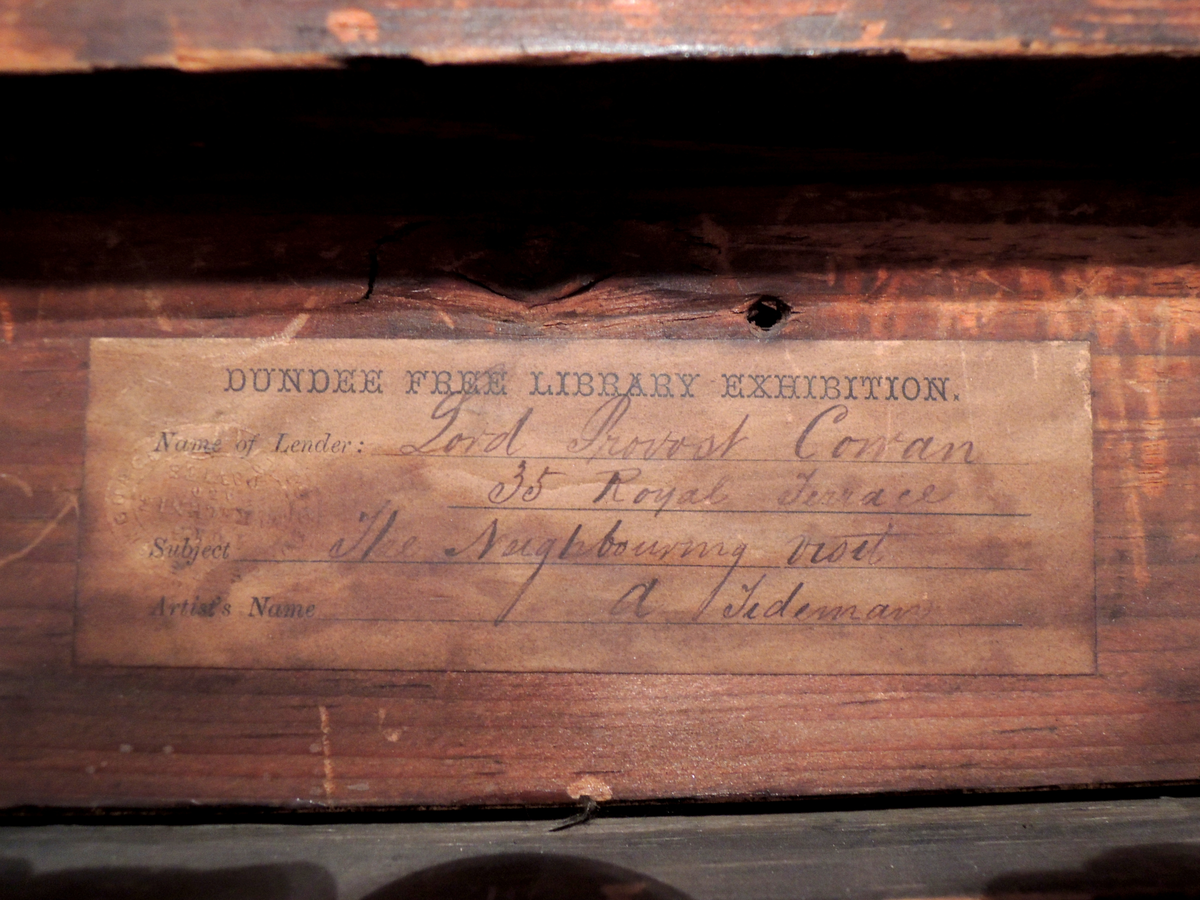 DUNDEE FREE LIBRARY EXHIBITION.
Name of Lender: Lord Provost Cowan
35 Royal Terrace
Subject The Neighbouring visit
Artist's Name A Tidemand